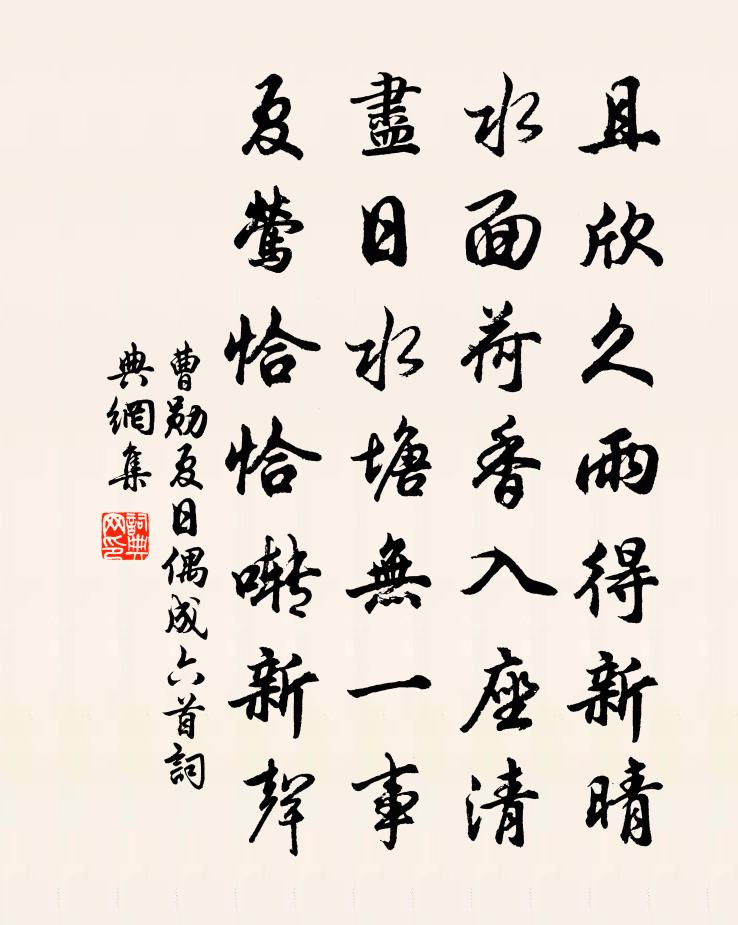 且欣久雨得新晴
水面荷香入座清
盡日水塘無一事
夏鶯恰恰囀新聲
曹勛夏日偶成六首詞
典網集
詞典
网印